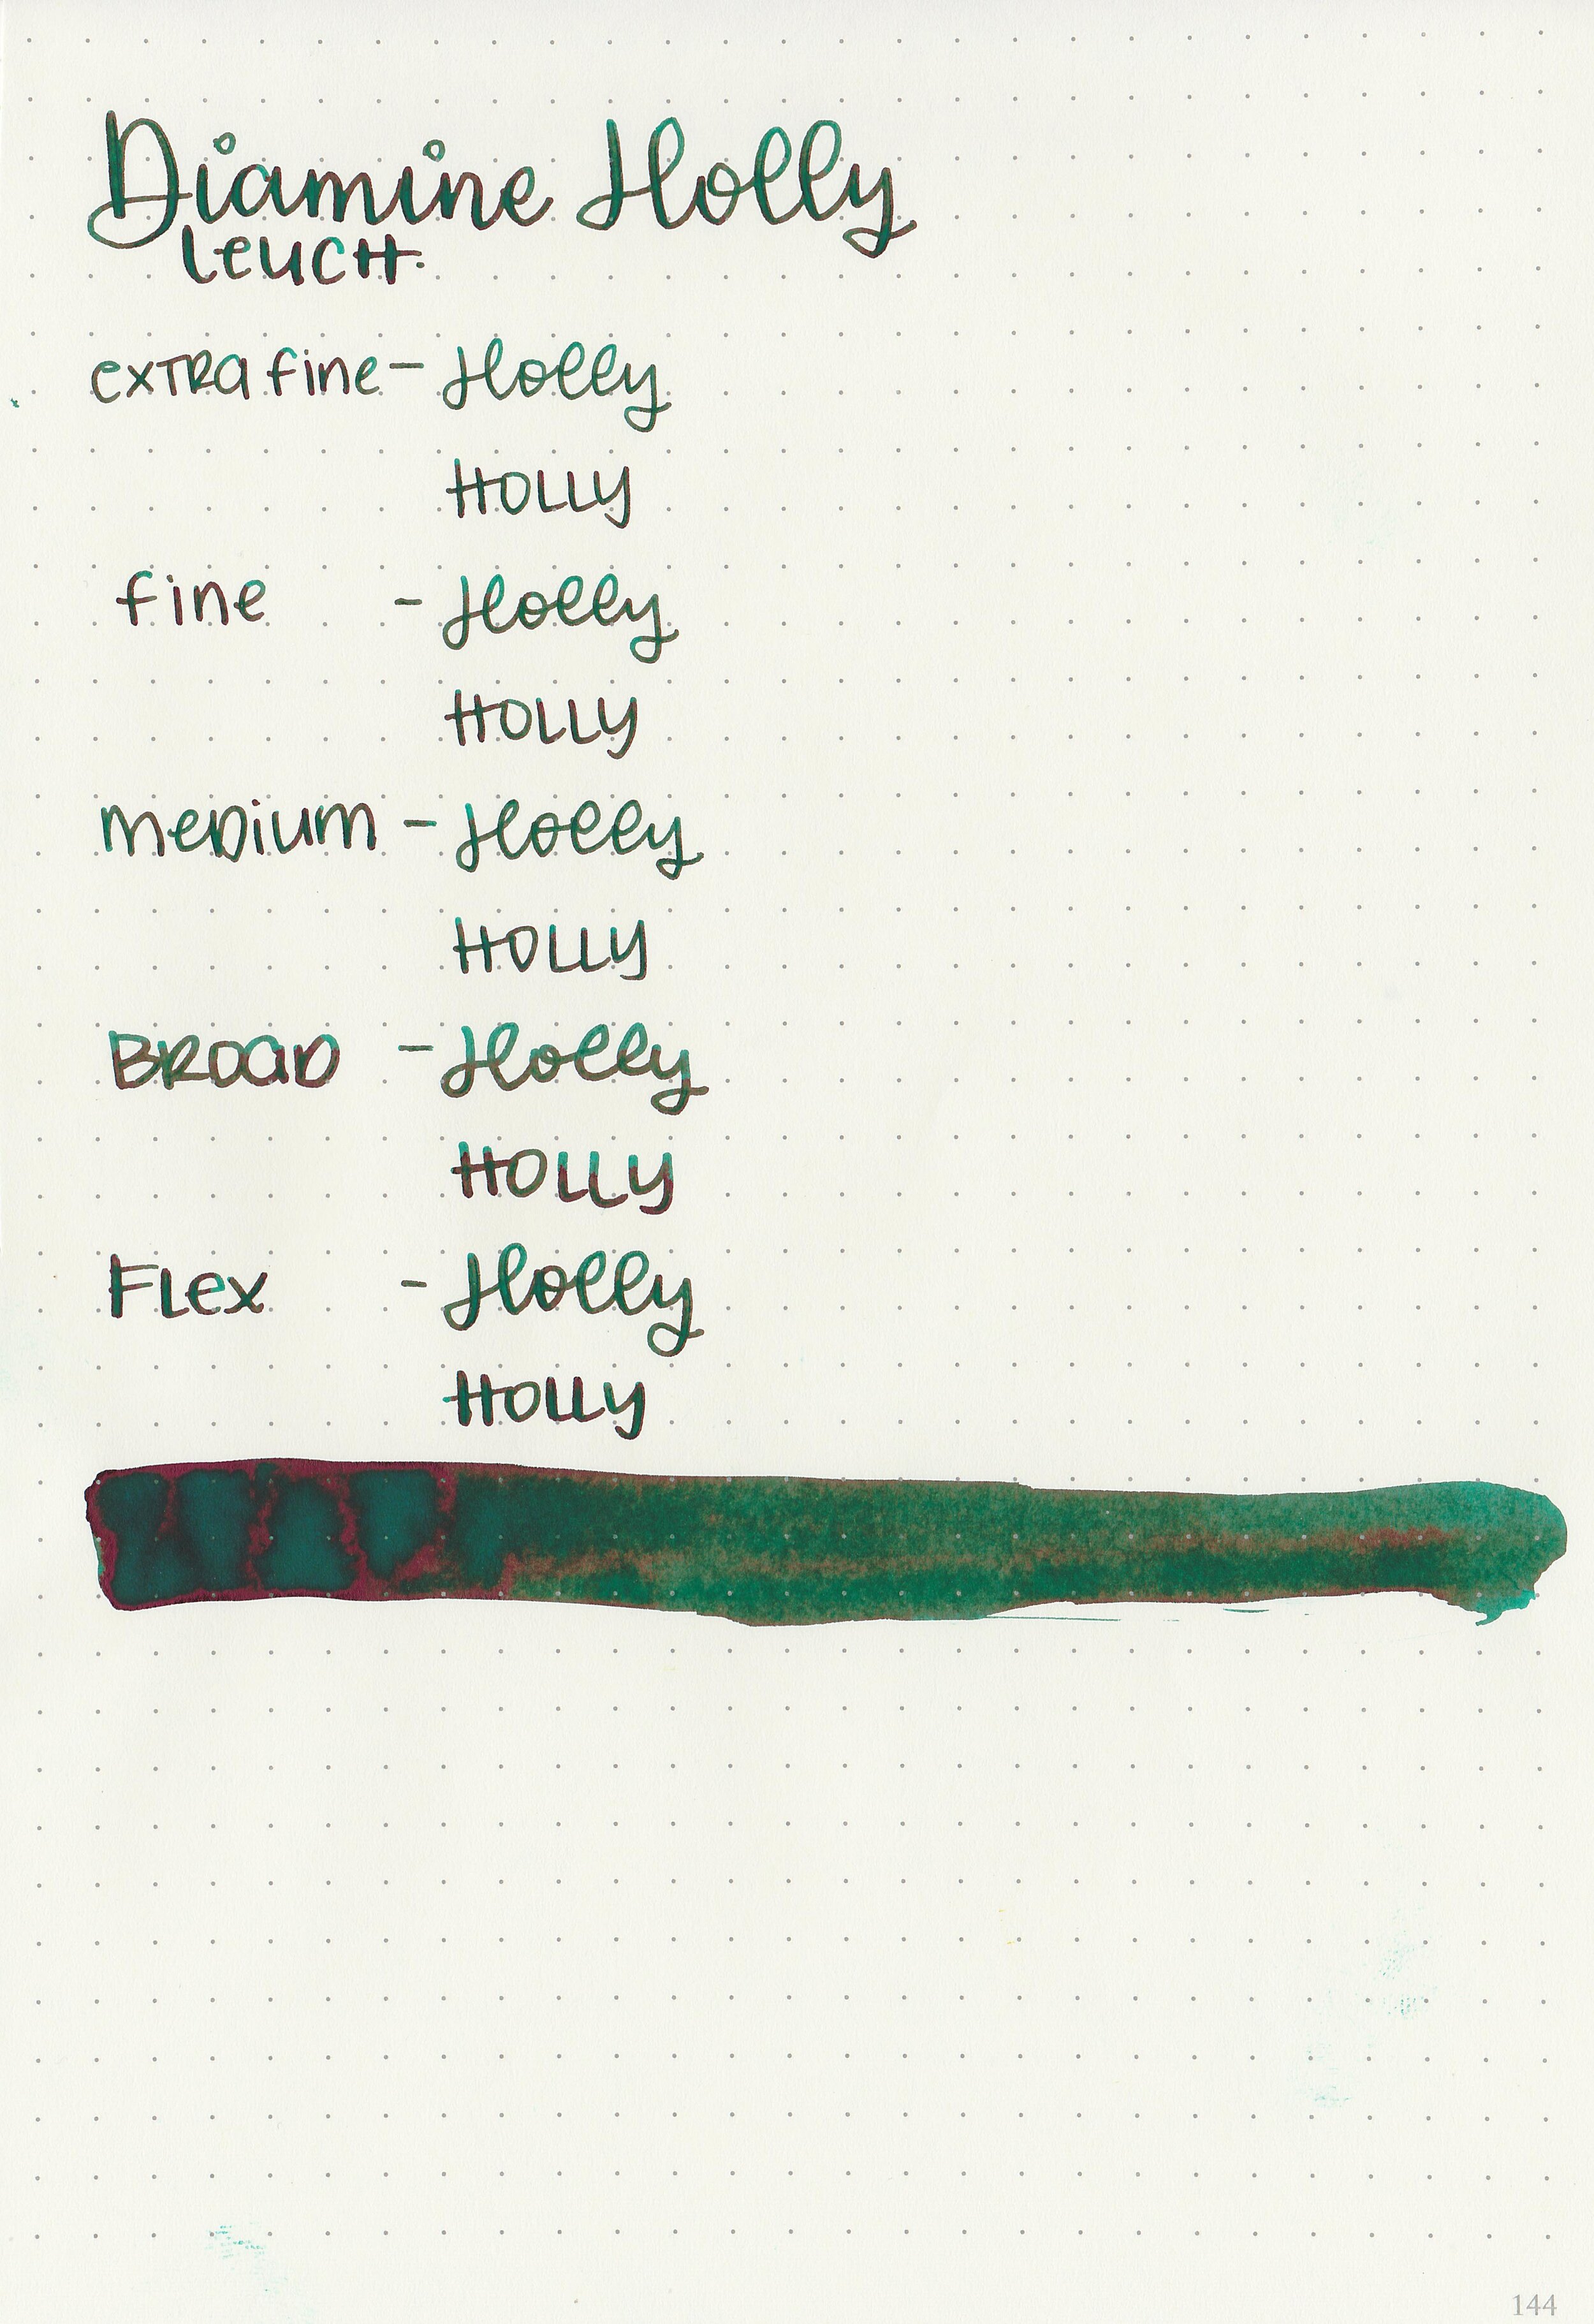 Diamine Holly
Leucht.
extra fine - Holly
HOLLY
fine - Holly
HOLLY
medium - Holly
HOLLY
Broad - Holly
HOLLY
Flex - Holly
HOLLY
144